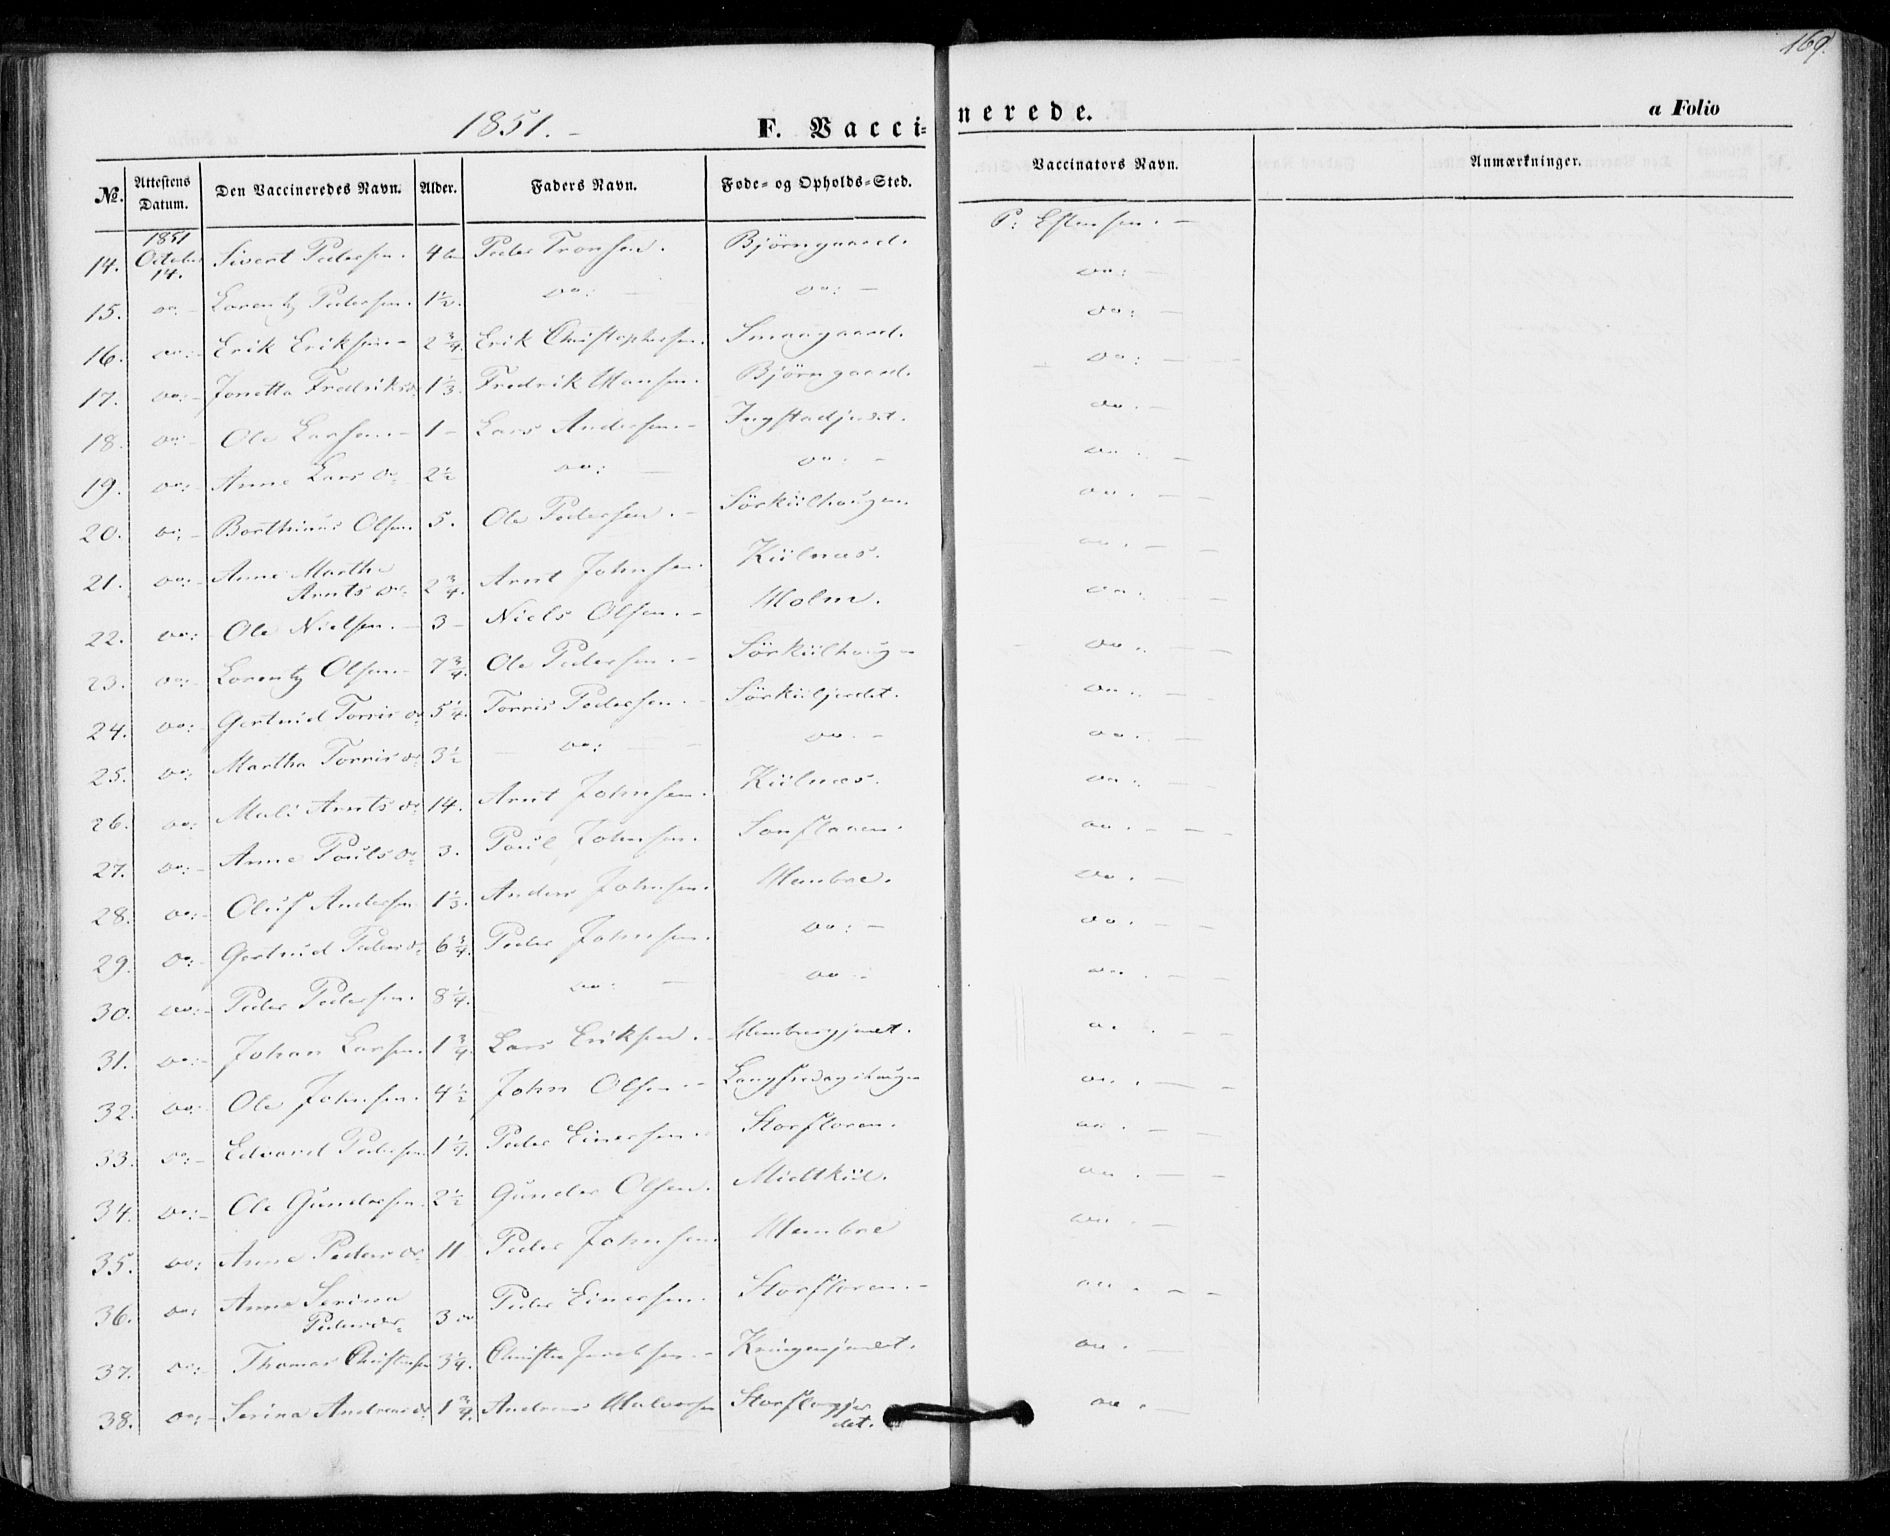 169.
1851. -
F. Vaccinerede.
a Folio
No. Attestens Datum. Den Vaccineredes Navn. Alder. Faders Navn. Føde- og Opholds-Sted. Vaccinators Navn. Anmærkninger.
14. 1851 October 14. Sivert Pedersen. 4 Peder Tronsen. Bjørngaard. P: Estensen. -
15. do: - Lorentz Pedersen. 1½. do: - do: - do: -
16. do: - Erik Eriksen - 2¾. Erik Christophersen. Smaagaard. do: -
17. do: - Jonetta Fredriksd. 1⅓. Fredrik Hansen. Bjørngaard. do: -
18. do: - Ole Larsen. - 1 - Lars Andersen - Ingstadjerdet. do. -
19. do: - Anne Larsd. 2½ do: - do: - do. -
20. do: - Berthinus Olsen. 5. Ole Pedersen. - Sörkiilhaugen. do. -
21. do: - Anne Martha Arntsd. 2¾. Arnt Johnsen. Kiilnæs. do. -
22. do: - Ole Nielsen. - 3 - Niels Olsen. - Holm. do. -
23. do: - Lorentz Olsen - 7¾. Ole Pedersen. - Sörkiilhaugen do. -
24. do: Gertrud Torrisd. 5¼. Torris Pedersen. - Sörkiiljerdet. do. -
25. do: Martha Torrisd. 3½ do: - do. - do. -
26. do: Mali Arntsd. 14. Arnt Johnsen. Kiilnæs. do. -
27. do: - Anne Poulsd. 3. Poul Johnsen. do. -
28. do: - Oluf Andersen 1⅓. Anders Johnsen. Hembre. do. -
29. do: - Gertrud Pedersd. 6¾. Peder Johnsen. do: - do. -
30. do: - Peder Pedersen. 8¼. do: - do - do. -
31. do: - Johan Larsen. 1¾. Lars Eriksen. - Hembregjerdet. do. -
32. do: Ole Johnsen. 4½ John Olsen - do. -
33. do: - Edvard Pedersen 1¼. Peder Einersen. Storfloren. do. -
34. do: - Ole Gundersen. 2½ Gunder Olsen. Midtkiil. do. -
35. do: Anne Pedersd. 11 Peder Johnsen. Hembre do. -
36. do: Anne Serina Pedersd. 3 do Peder Einersen. Storfloren. - do. -
37. do: - Thomas Christensen 3¼. Christen Jacobsen. - Kringenjerdet. do. -
38. do: - Serina Andreasd. 1¾. Andreas Halvorsen Storflorjerdet. do. -